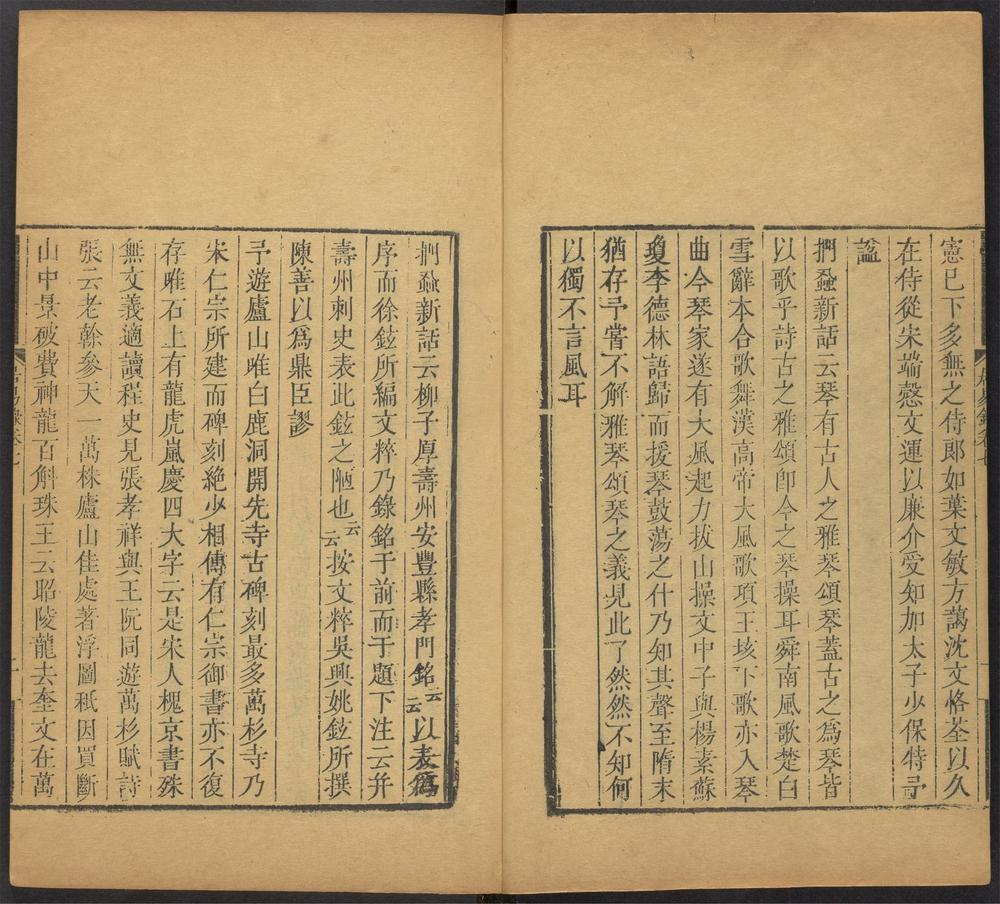 憲已下多無之侍郎如葉文敏方藹沈文恪荃以久
在侍從朱端愨文運以廉介受知加太子少保特予
謚
捫蝨新話云琴有古人之雅琴頌琴蓋古之為琴皆
以歌乎詩古之雅頌即今之琴操耳舜南風歌楚白
雪辭本合歌舞漢高帝大風歌項王垓下歌亦入琴
曲今琴家遂有大風起力拔山操文中子與楊素蘇
瓊李德林語歸而援琴鼓蕩之什乃知其聲至隋末
猶存予嘗不解雅琴頌琴之義見此了然然不知何
以獨不言風耳
居易錄卷七
捫蝨新話云柳子厚壽州安豐縣孝門銘云云以表為
序而徐鉉所編文粹乃錄銘于前而于題下注云并
壽州刺史表此鉉之陋也云云按文粹吳興姚鉉所撰
陳善以爲鼎臣謬
予遊廬山唯白鹿洞開先寺古碑刻最多萬杉寺乃
宋仁宗所建而碑刻絶少相傳有仁宗御書亦不復
存唯石上有龍虎嵐慶四大字云是宋人槐京書殊
無文義適讀程史見張孝祥與王阮同遊萬杉賦詩
張云老榦參天一萬株廬山佳處著浮圖秪因買斷
山中景破費神龍百斛珠王云昭陵龍去奎文在萬